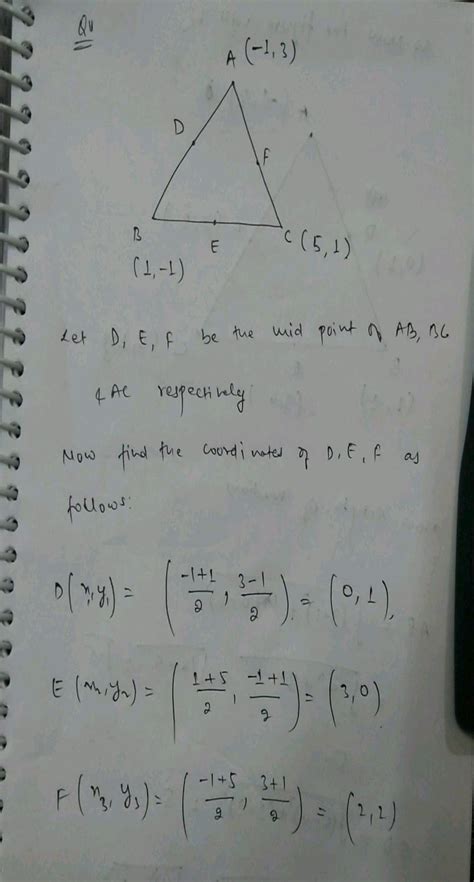 Q4
A (-1, 3)
D
F
B
E
C (5, 1)
(1, -1)
Let D, E, F be the mid point of AB, BC
& AC respectively.
Now find the coordinates of D, E, F as
follows:
D(x₁, y₁) = (-1+1/2, 3-1/2) = (0, 1),
E(x₂, y₂) = (1+5/2, -1+1/2) = (3, 0)
F(x₃, y₃) = (-1+5/2, 3+1/2) = (2, 2)